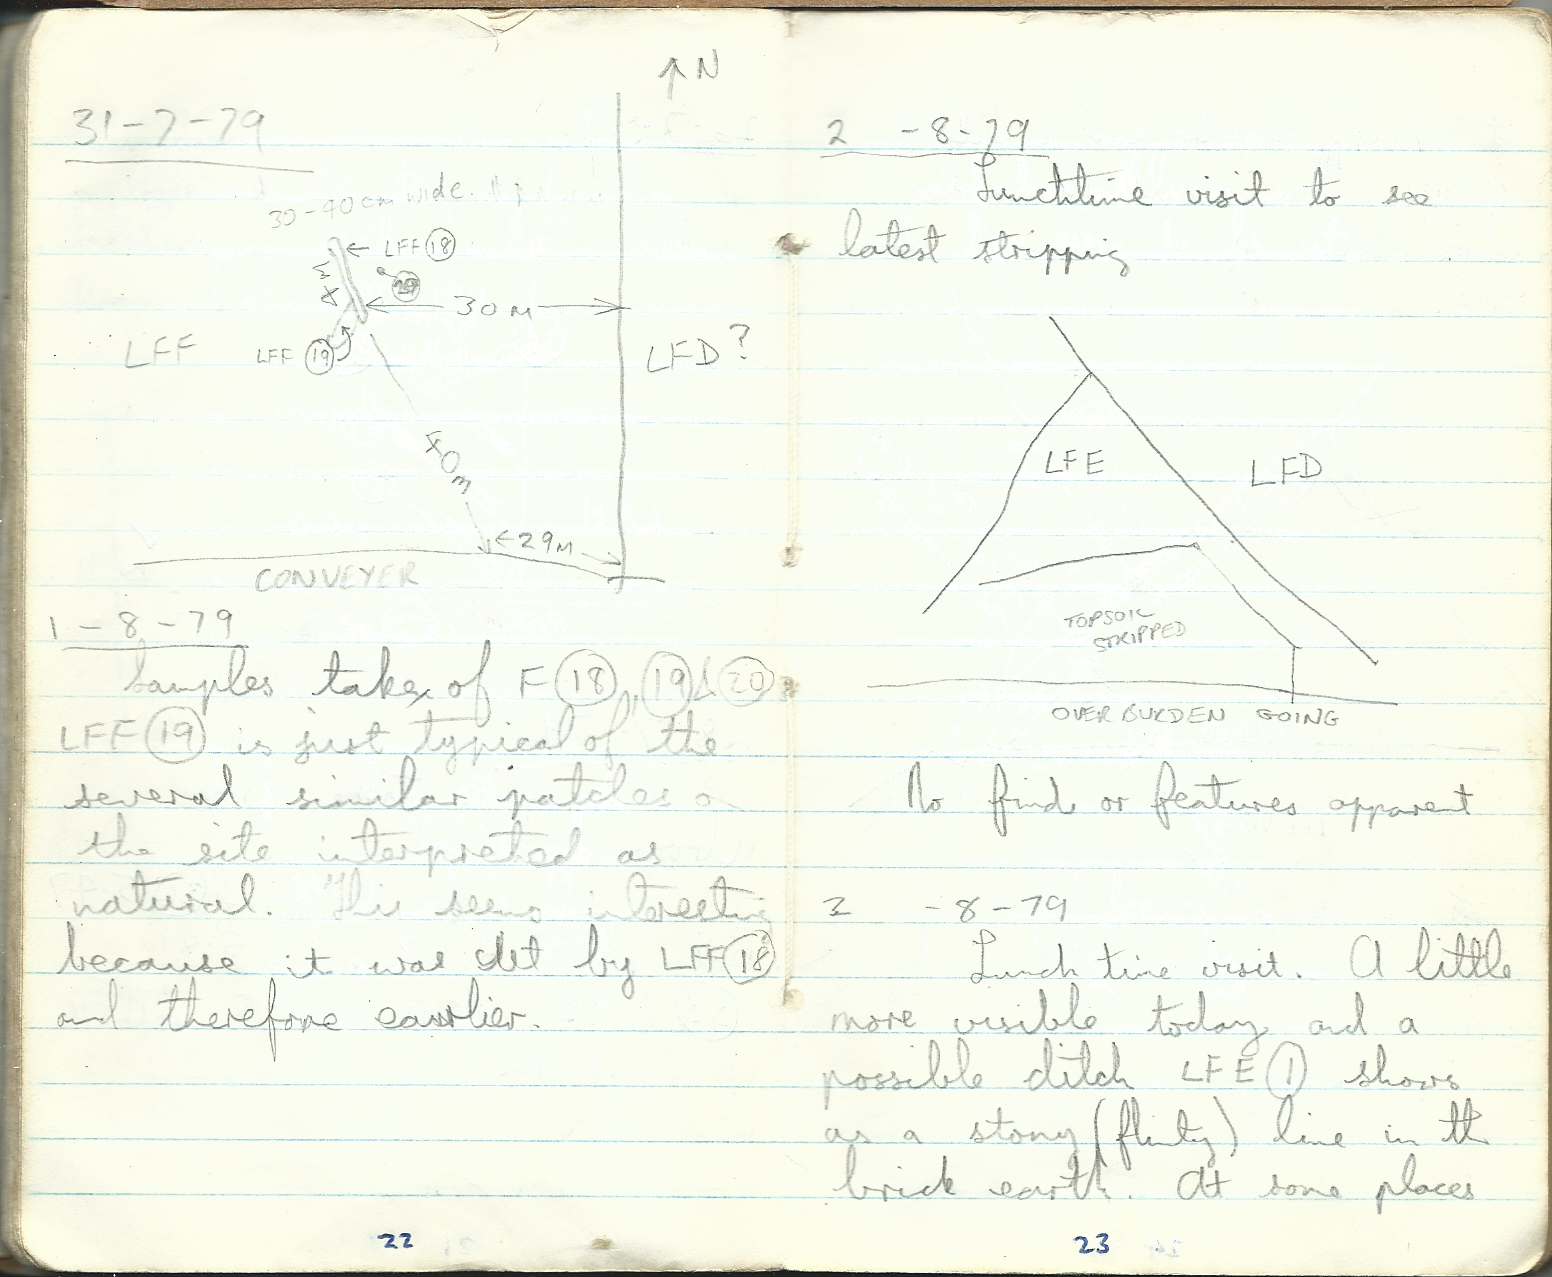 ↑ N
31-7-79
30-40cm wide.
← LFF 18
4M
20
← 30 M →
LFF
LFF 19
LFD?
40m
←29M→
CONVEYER
1-8-79
Samples take of F 18, 19 & 20.
LFF 19 is just typical of the
several similar patches on
the site interpreted as
natural. This seems interesting
because it was cut by LFF 18
and therefore earlier.
22
2 -8-79
Lunchtime visit to see
latest stripping
LFE
LFD
TOPSOIL
STRIPPED
OVERBURDEN GOING
No finds or features apparent
3 -8-79
Lunch time visit. A little
more visible today and a
possible ditch LFE 1 shows
as a stony (flinty) line in the
brick earth. At some places
23